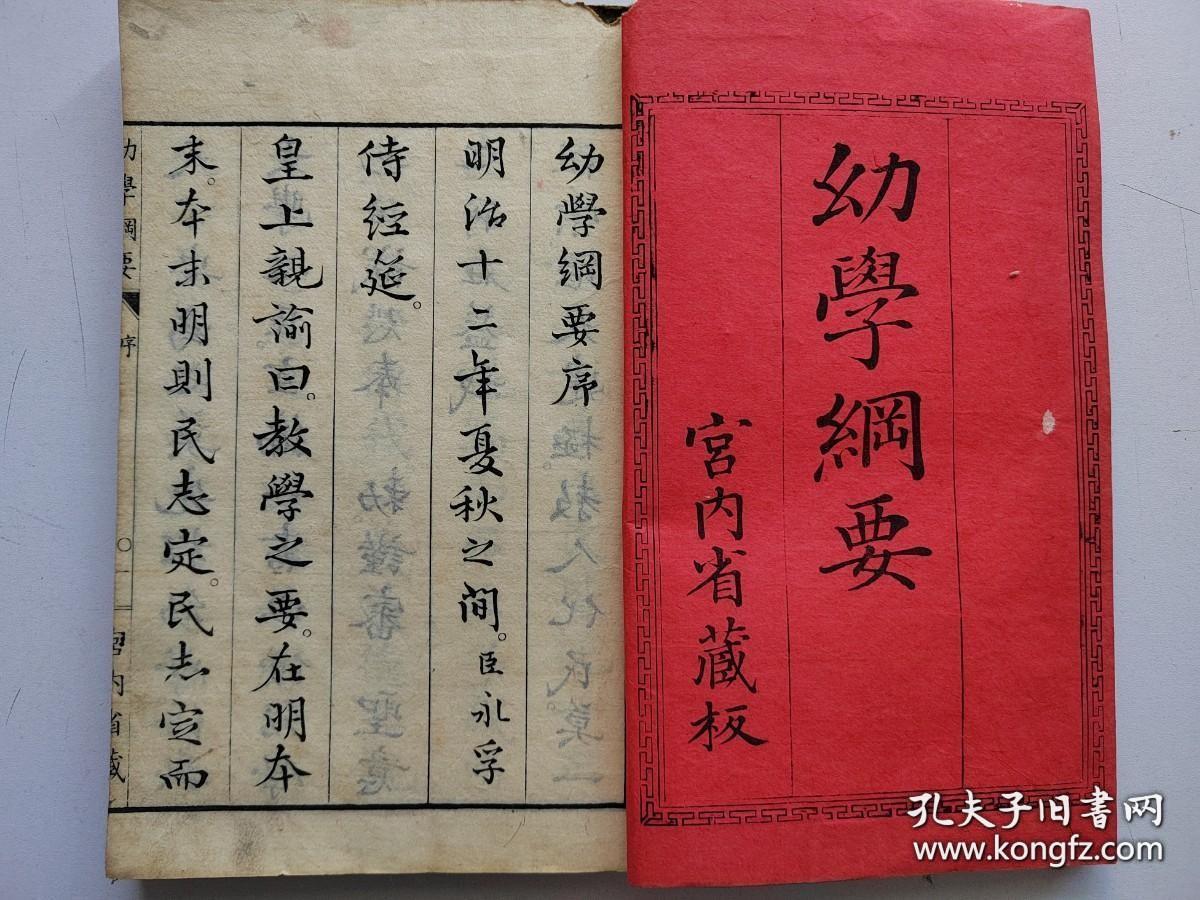 幼學綱要
宮内省藏板
幼學綱要序
明治十二年夏秋之間。臣永孚
侍經筵。
皇上親諭曰。教學之要。在明本
末。本末明則民志定。民志定而
幼學綱要 序 〇一 宮内省藏
孔夫子旧书网
www.kongfz.com